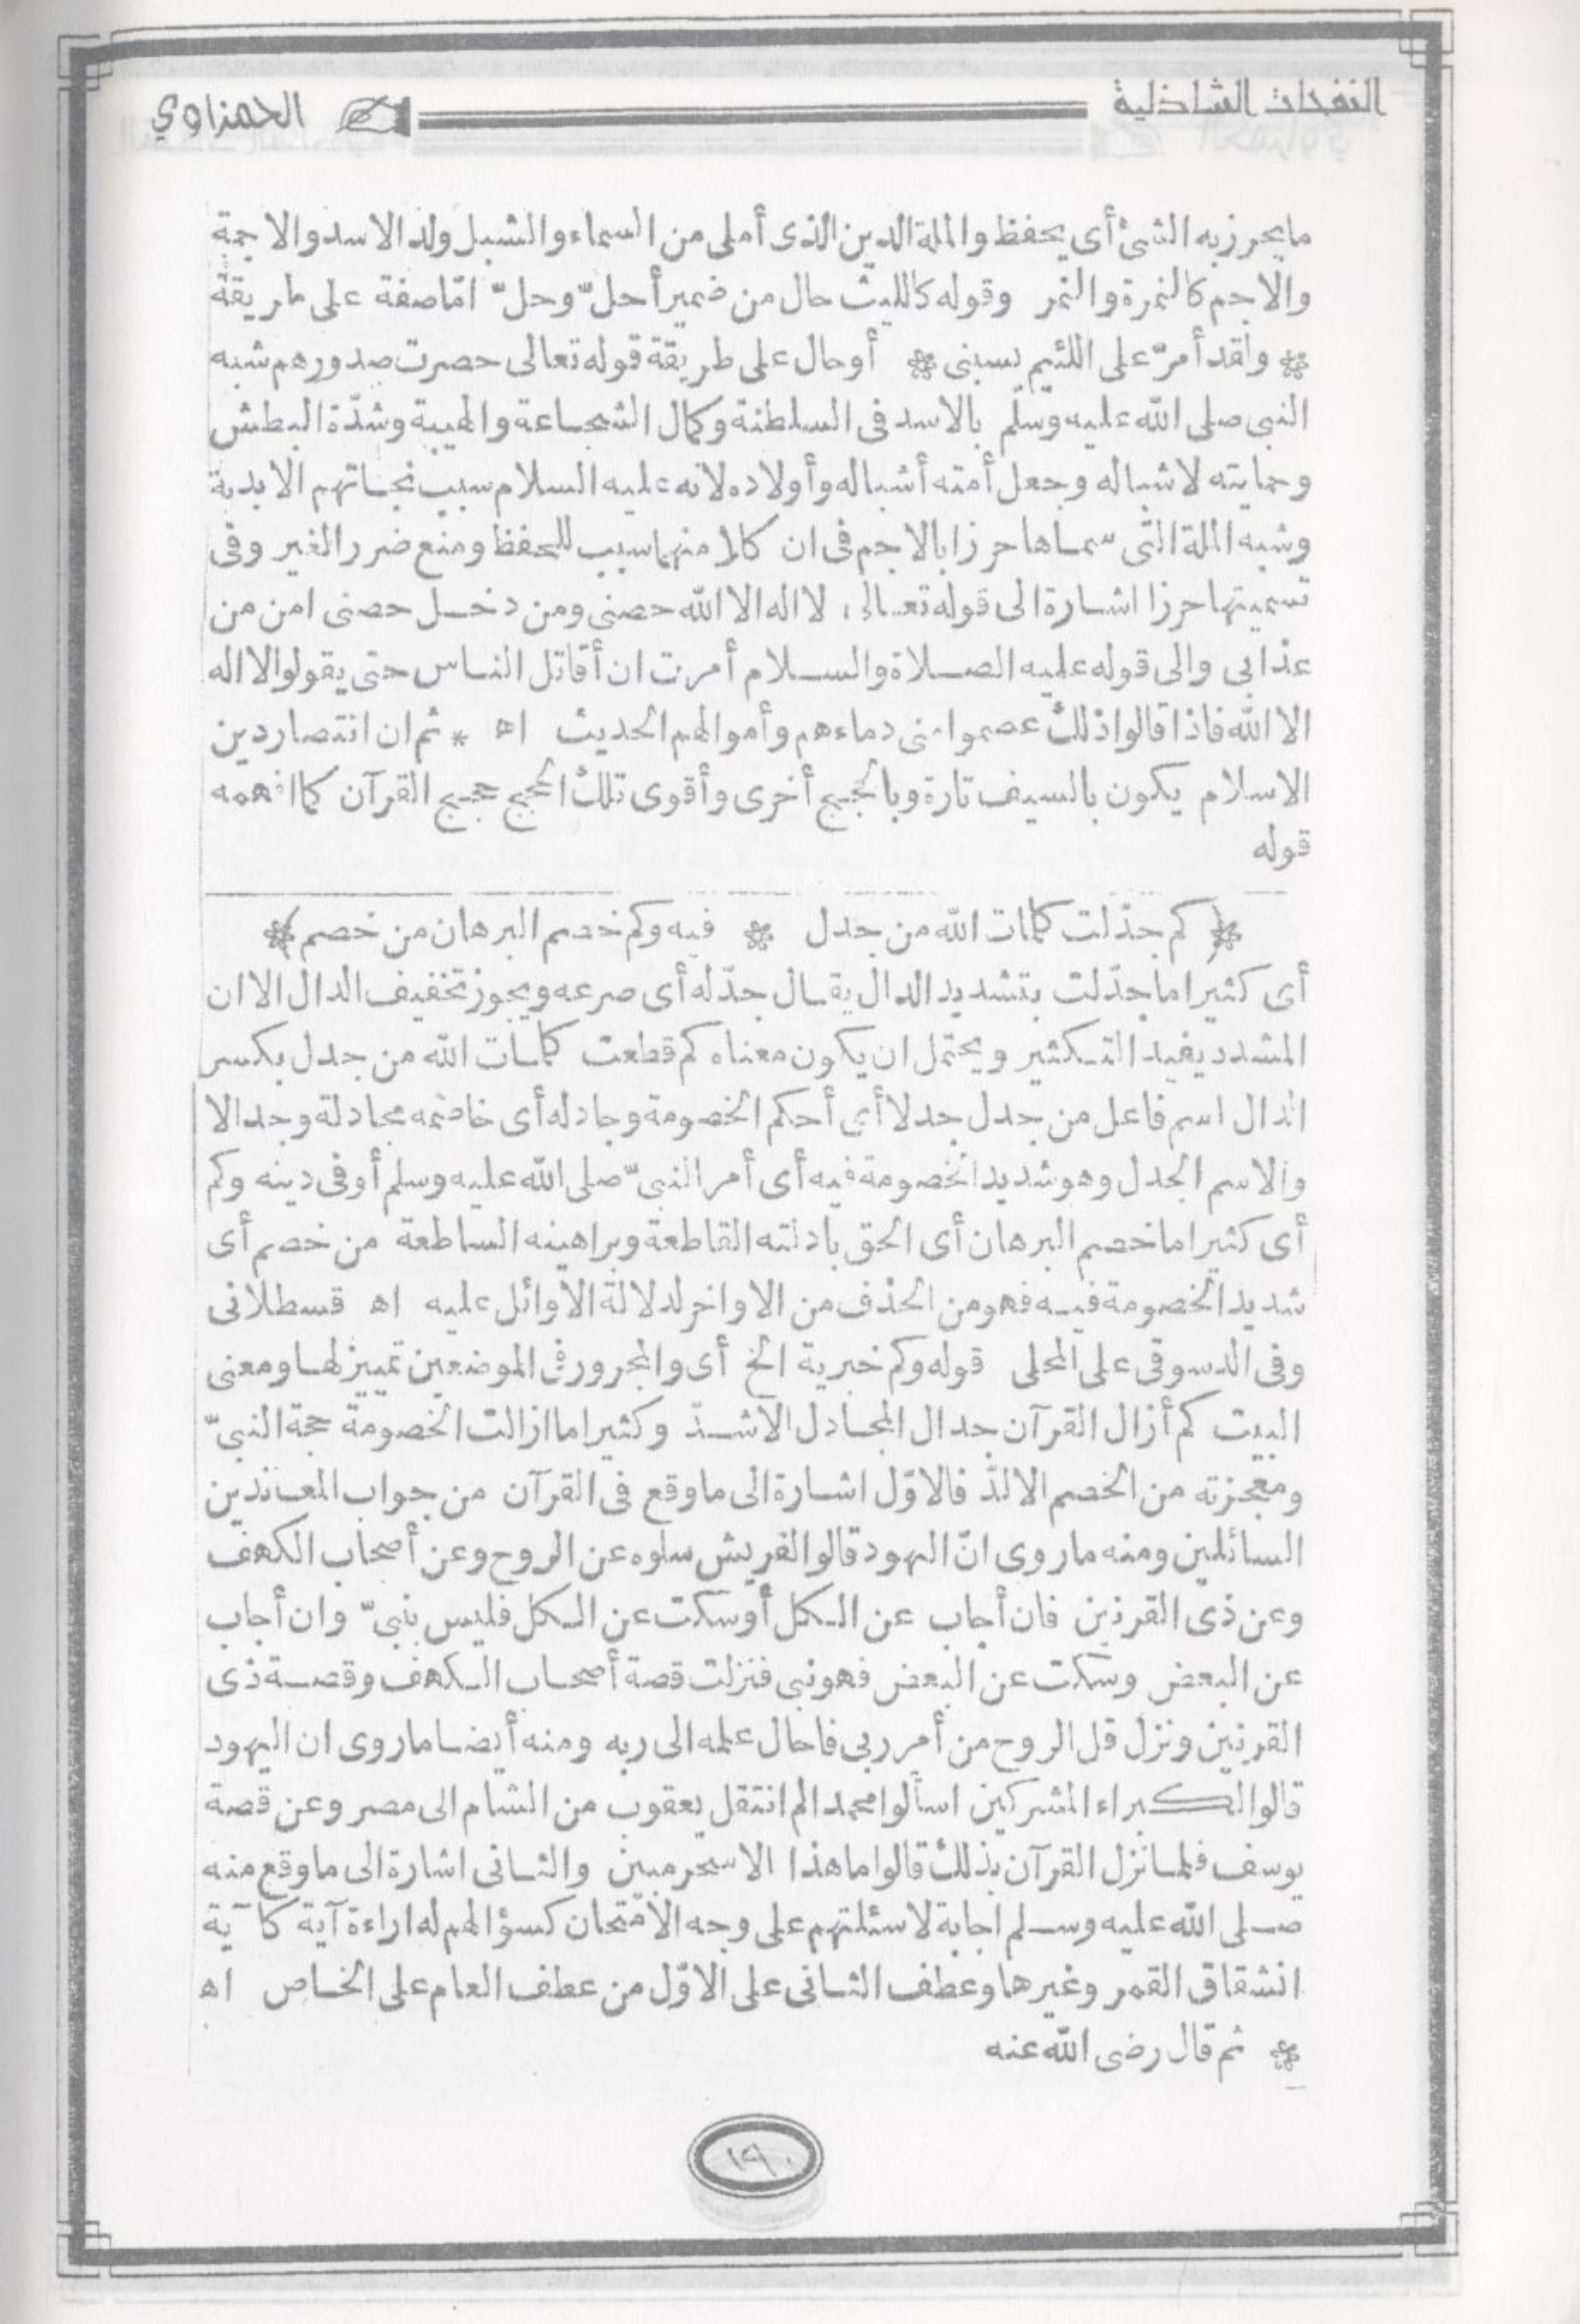 النفحات الشاذلية الحمزاوي
ما يحرز به الشئ أى يحفظ والملة الدين الذى أملى من السماء والشبل ولد الاسد والاجمة
والاجم كالنمرة والنمر وقوله كالليث حال من ضمير أحلّ وحلّ امّا صفة على طريقة
* ولقد أمرّ على اللئيم يسبنى * أو حال على طريقة قوله تعالى حصرت صدورهم شبه
النبى صلى الله عليه وسلم بالاسد فى السلطنة وكمال الشجاعة والهيبة وشدّة البطش
وحمايته لاشباله وجعل أمته أشباله وأولاده لانه عليه السلام سبب نجاتهم الابدية
وشبه الملة التى سماها حرزا بالاجم فى ان كلا منهما سبب للحفظ ومنع ضرر الغير وفى
تسميتها حرزا اشارة الى قوله تعالى لا اله الا الله حصنى ومن دخل حصنى امن من
عذابى والى قوله عليه الصلاة والسلام أمرت ان أقاتل الناس حتى يقولوا لا اله
الا الله فاذا قالوا ذلك عصموا منى دماءهم وأموالهم الحديث اه * ثم ان انتصار دين
الاسلام يكون بالسيف تارة وبالحجج أخرى وأقوى تلك الحجج حجج القرآن كما افهمه
قوله
* كم جدّلت كلمات الله من جدل * فيه وكم خصم البرهان من خصم *
أى كثيرا ما جدّلت بتشديد الدال يقال جدّله أى صرعه ويجوز تخفيف الدال الا ان
المشدد يفيد التكثير ويحتمل ان يكون معناه كم قطعت كلمات الله من جدل بكسر
الدال اسم فاعل من جدل جدلا أى أحكم الخصومة وجادله أى خاصمه مجادلة وجدالا
والاسم الجدل وهو شديد الخصومة فيه أى أمر النبىّ صلى الله عليه وسلم أو فى دينه وكم
أى كثيرا ما خصم البرهان أى الحق بادلته القاطعة وبراهينه الساطعة من خصم أى
شديد الخصومة فيه فهو من الحذف من الاواخر لدلالة الأوائل عليه اه قسطلانى
وفى الدسوقى على المحلى قوله وكم خبرية الخ أى والمجرور فى الموضعين تمييز لها ومعنى
البيت كم أزال القرآن جدال المجادل الاشدّ وكثيرا ما ازالت الخصومة حجة النبىّ
ومعجزته من الخصم الالدّ فالاوّل اشارة الى ما وقع فى القرآن من جواب المعاندين
السائلين ومنه ما روى انّ اليهود قالوا لقريش سلوه عن الروح وعن أصحاب الكهف
وعن ذى القرنين فان أجاب عن الكل أو سكت عن الكل فليس بنبىّ وان أجاب
عن البعض وسكت عن البعض فهو نبى فنزلت قصة أصحاب الكهف وقصة ذى
القرنين ونزل قل الروح من أمر ربى فاحال علمه الى ربه ومنه أيضا ما روى ان اليهود
قالوا لكبراء المشركين اسألوا محمدا لم انتقل يعقوب من الشام الى مصر وعن قصة
يوسف فلما نزل القرآن بذلك قالوا ما هذا الا سحر مبين والثانى اشارة الى ما وقع منه
صلى الله عليه وسلم اجابة لاسئلتهم على وجه الامتحان كسؤالهم له اراءة آية كآية
انشقاق القمر وغيرها وعطف الثانى على الاوّل من عطف العام على الخاص اه
* ثم قال رضى الله عنه